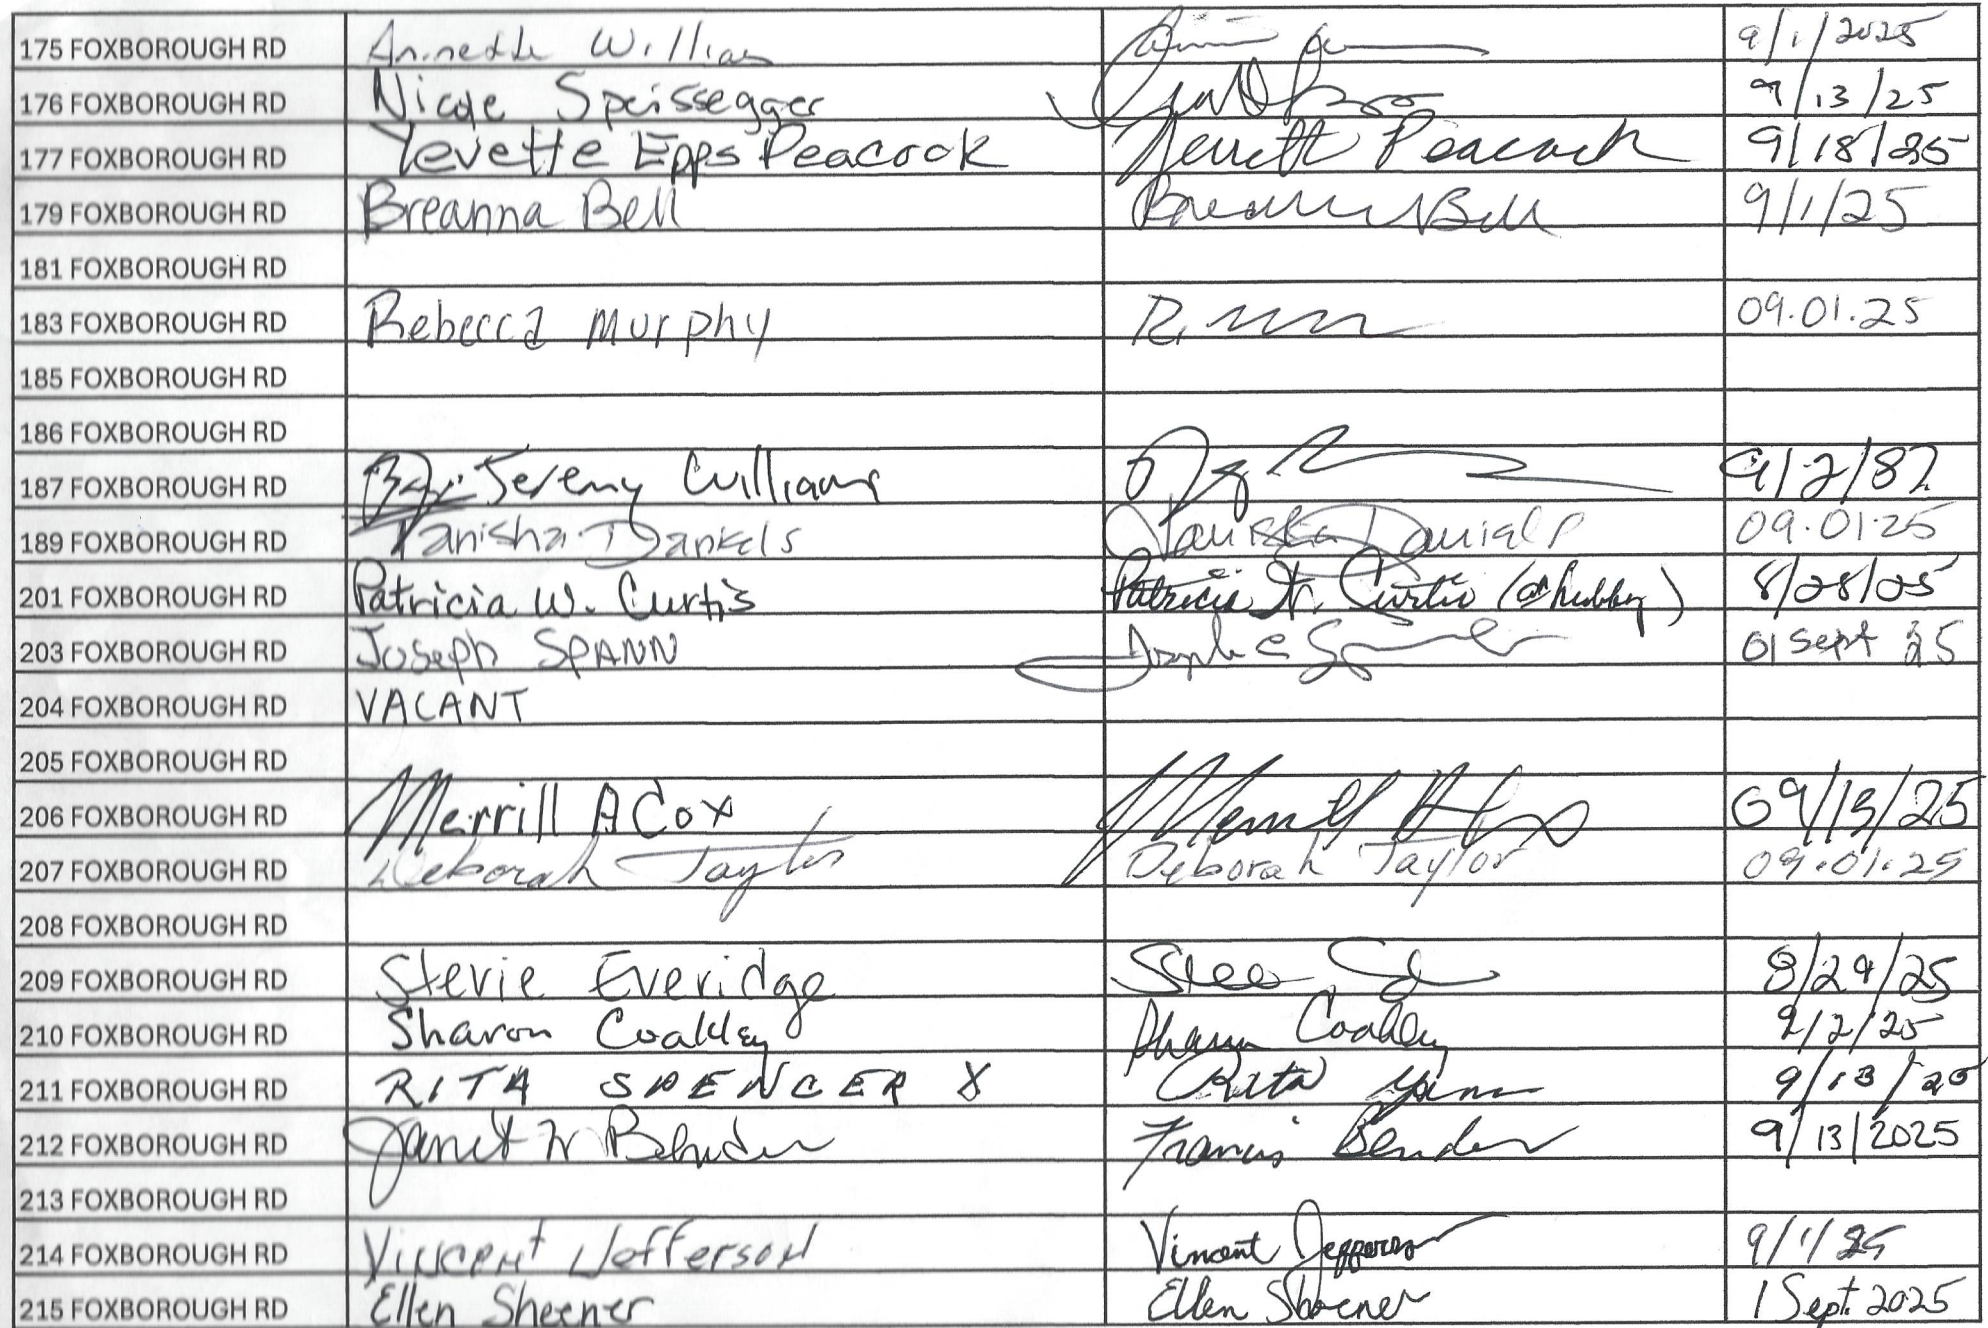 175 FOXBOROUGH RD Annette William 9/1/2025
176 FOXBOROUGH RD Nicole Speissegger 9/13/25
177 FOXBOROUGH RD Yevette Epps Peacock Peacock 9/18/25
179 FOXBOROUGH RD Breanna Bell Breanna Bell 9/1/25
181 FOXBOROUGH RD
183 FOXBOROUGH RD Rebecca Murphy R. 09.01.25
185 FOXBOROUGH RD
186 FOXBOROUGH RD
187 FOXBOROUGH RD Jeremy Williams 9/2/87
189 FOXBOROUGH RD Tanisha Daniels Tanisha Daniels 09.01.25
201 FOXBOROUGH RD Patricia W. Curtis Patricia W. Curtis 8/28/25
203 FOXBOROUGH RD Joseph SPANN Joseph C 01 Sept 25
204 FOXBOROUGH RD VACANT
205 FOXBOROUGH RD
206 FOXBOROUGH RD Merrill A Cox Merrill A Cox 09/15/25
207 FOXBOROUGH RD Deborah Taylor Deborah Taylor 09.01.25
208 FOXBOROUGH RD
209 FOXBOROUGH RD Stevie Everidge 8/29/25
210 FOXBOROUGH RD Sharon Coakley Sharon Coakley 9/2/25
211 FOXBOROUGH RD RITA SPENCER X Rita 9/13/25
212 FOXBOROUGH RD Janet Francis Bender 9/13/2025
213 FOXBOROUGH RD
214 FOXBOROUGH RD Vincent Jefferson Vincent Jefferson 9/1/25
215 FOXBOROUGH RD Ellen Sheener Ellen Sheener 1 Sept. 2025